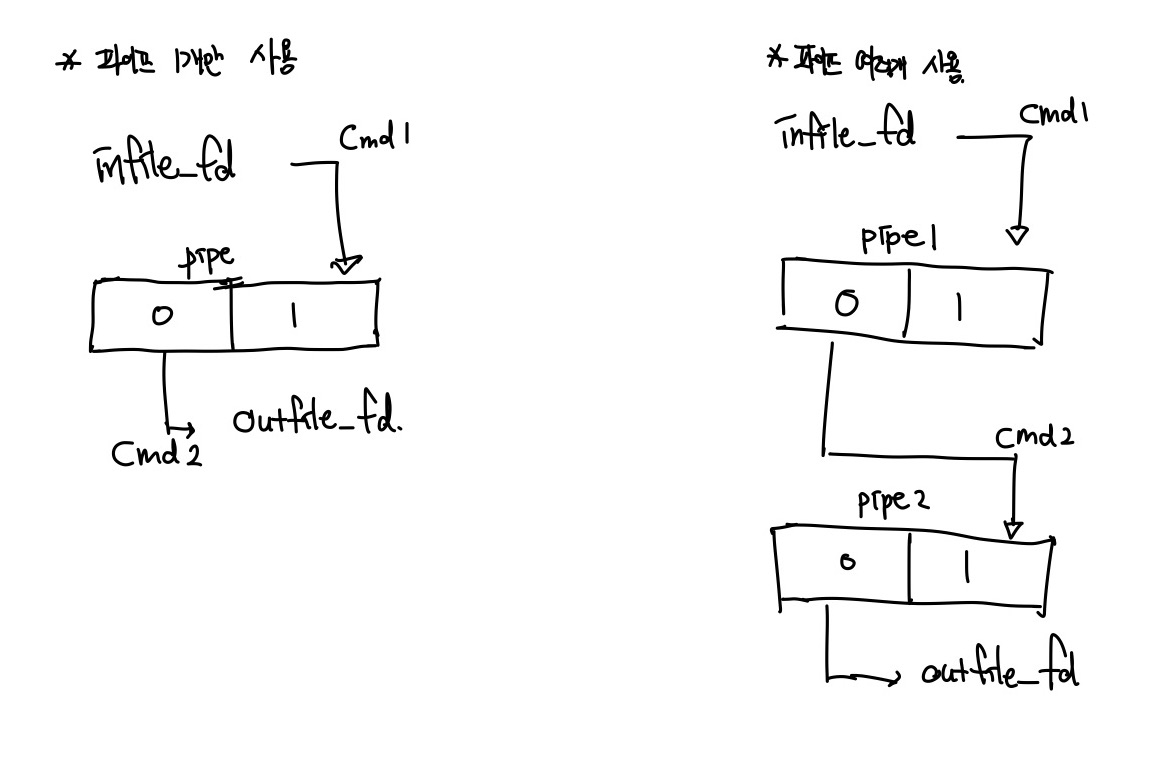 * 파이프 1개만 사용
infile_fd
Cmd1
pipe
0
1
Cmd2
outfile_fd.
* 파이프 여러개 사용.
infile_fd
Cmd1
pipe1
0
1
Cmd2
pipe2
0
1
outfile_fd